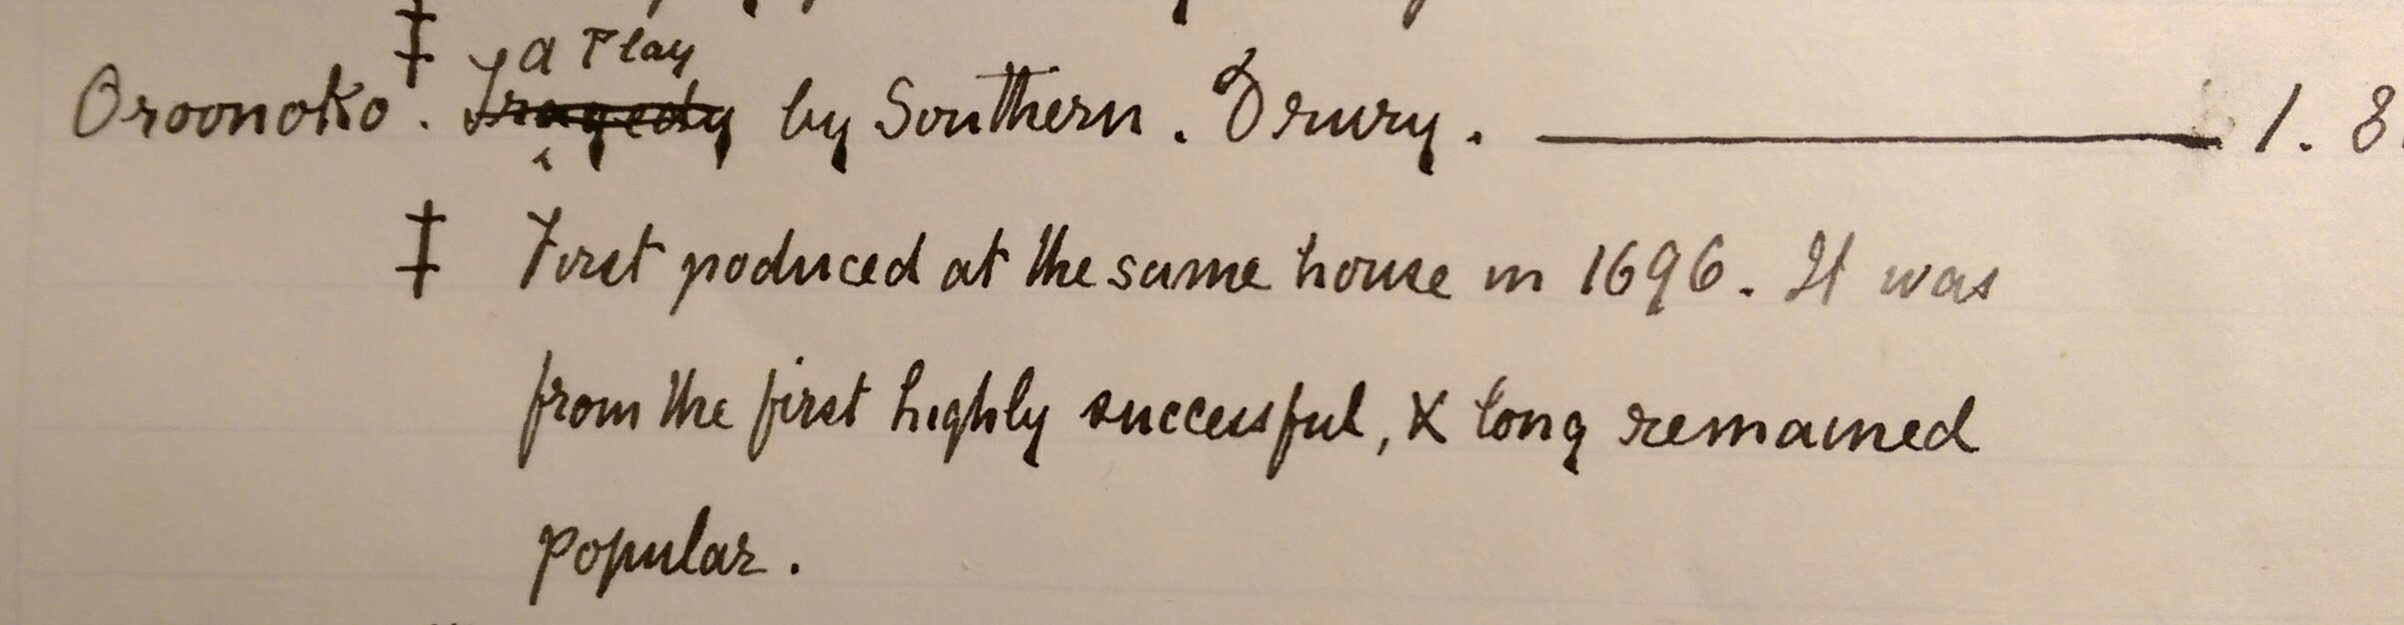 ‡ a Play
Oroonoko. Tragedy by Southern. Drury. 1. 8.
‡ First poduced at the same house in 1696. It was
from the first highly successful, & long remained
popular.